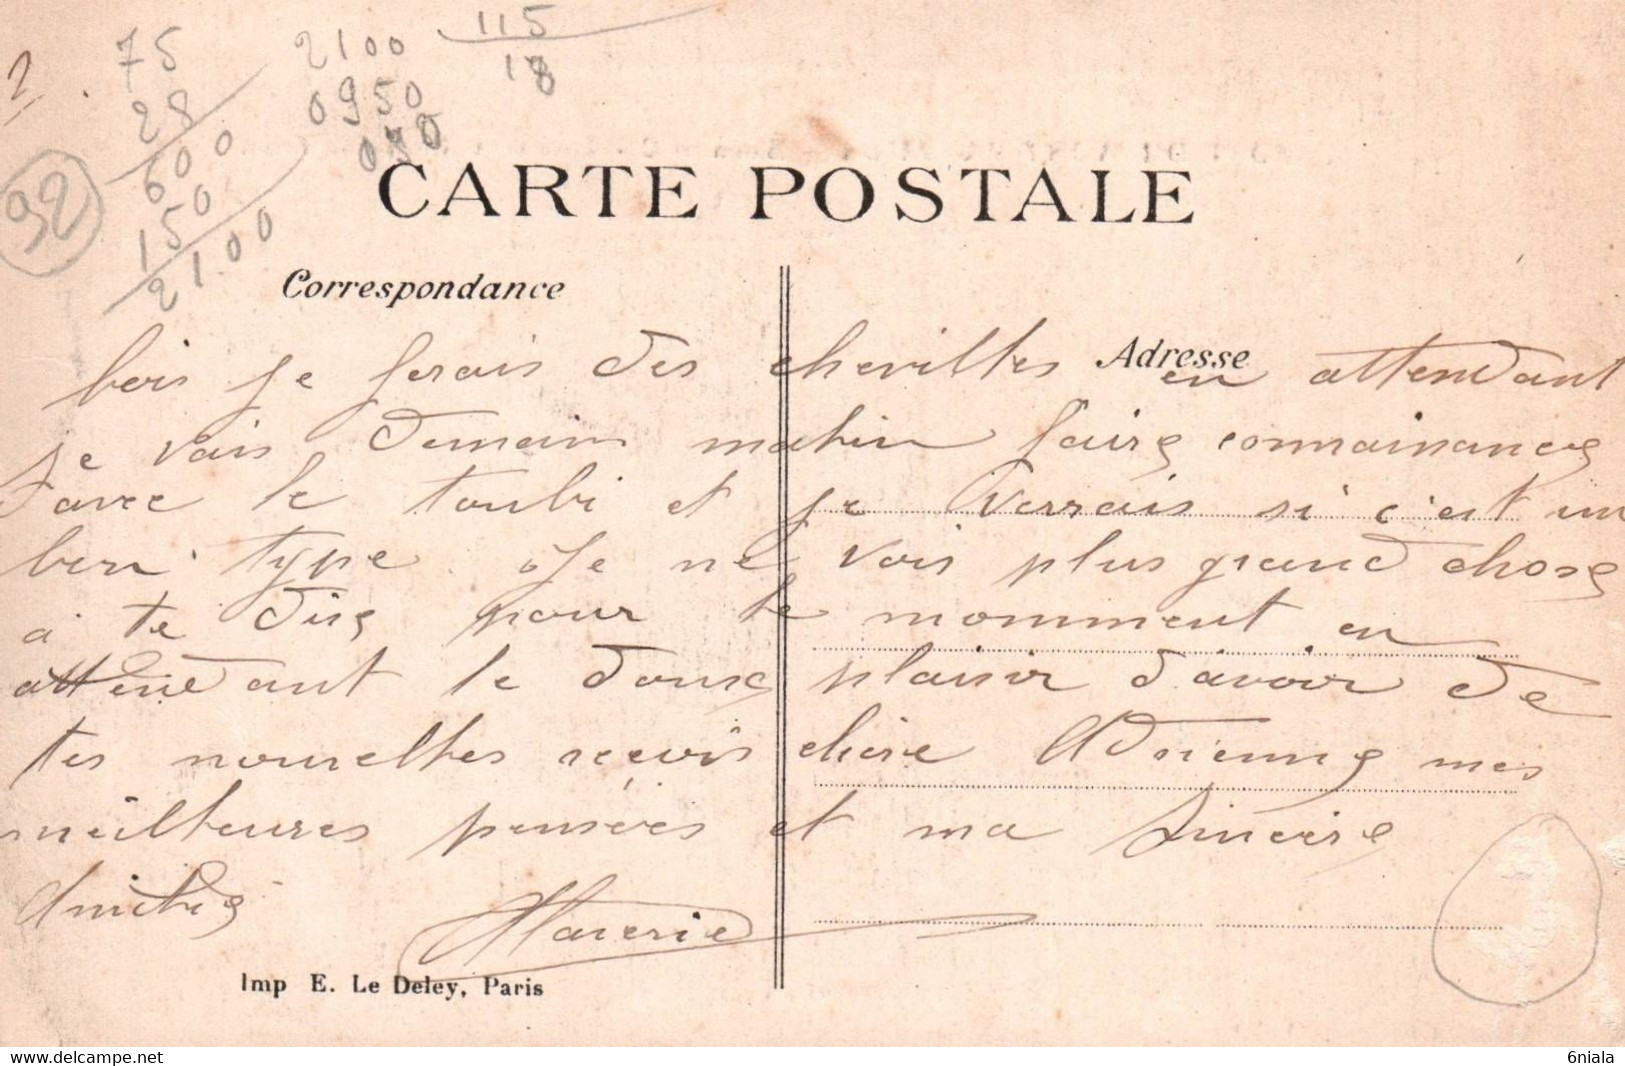 2
75
28
600
150
2100
2100
0950
115
18
92
CARTE POSTALE
Correspondance
Adresse
bois je ferais des chevilles en attendant
je vais demain matin faire connainances
avec le toubi et je verrais si c'est un
bon type. Je ne vois plus grand chose
a te dire pour le momment en
attendant le doux plaisir d'avoir de
tes nouvelles reçois chère Adrienne mes
meilleures pensées et ma sincère
Amitié
Imp E. Le Deley, Paris
6niala